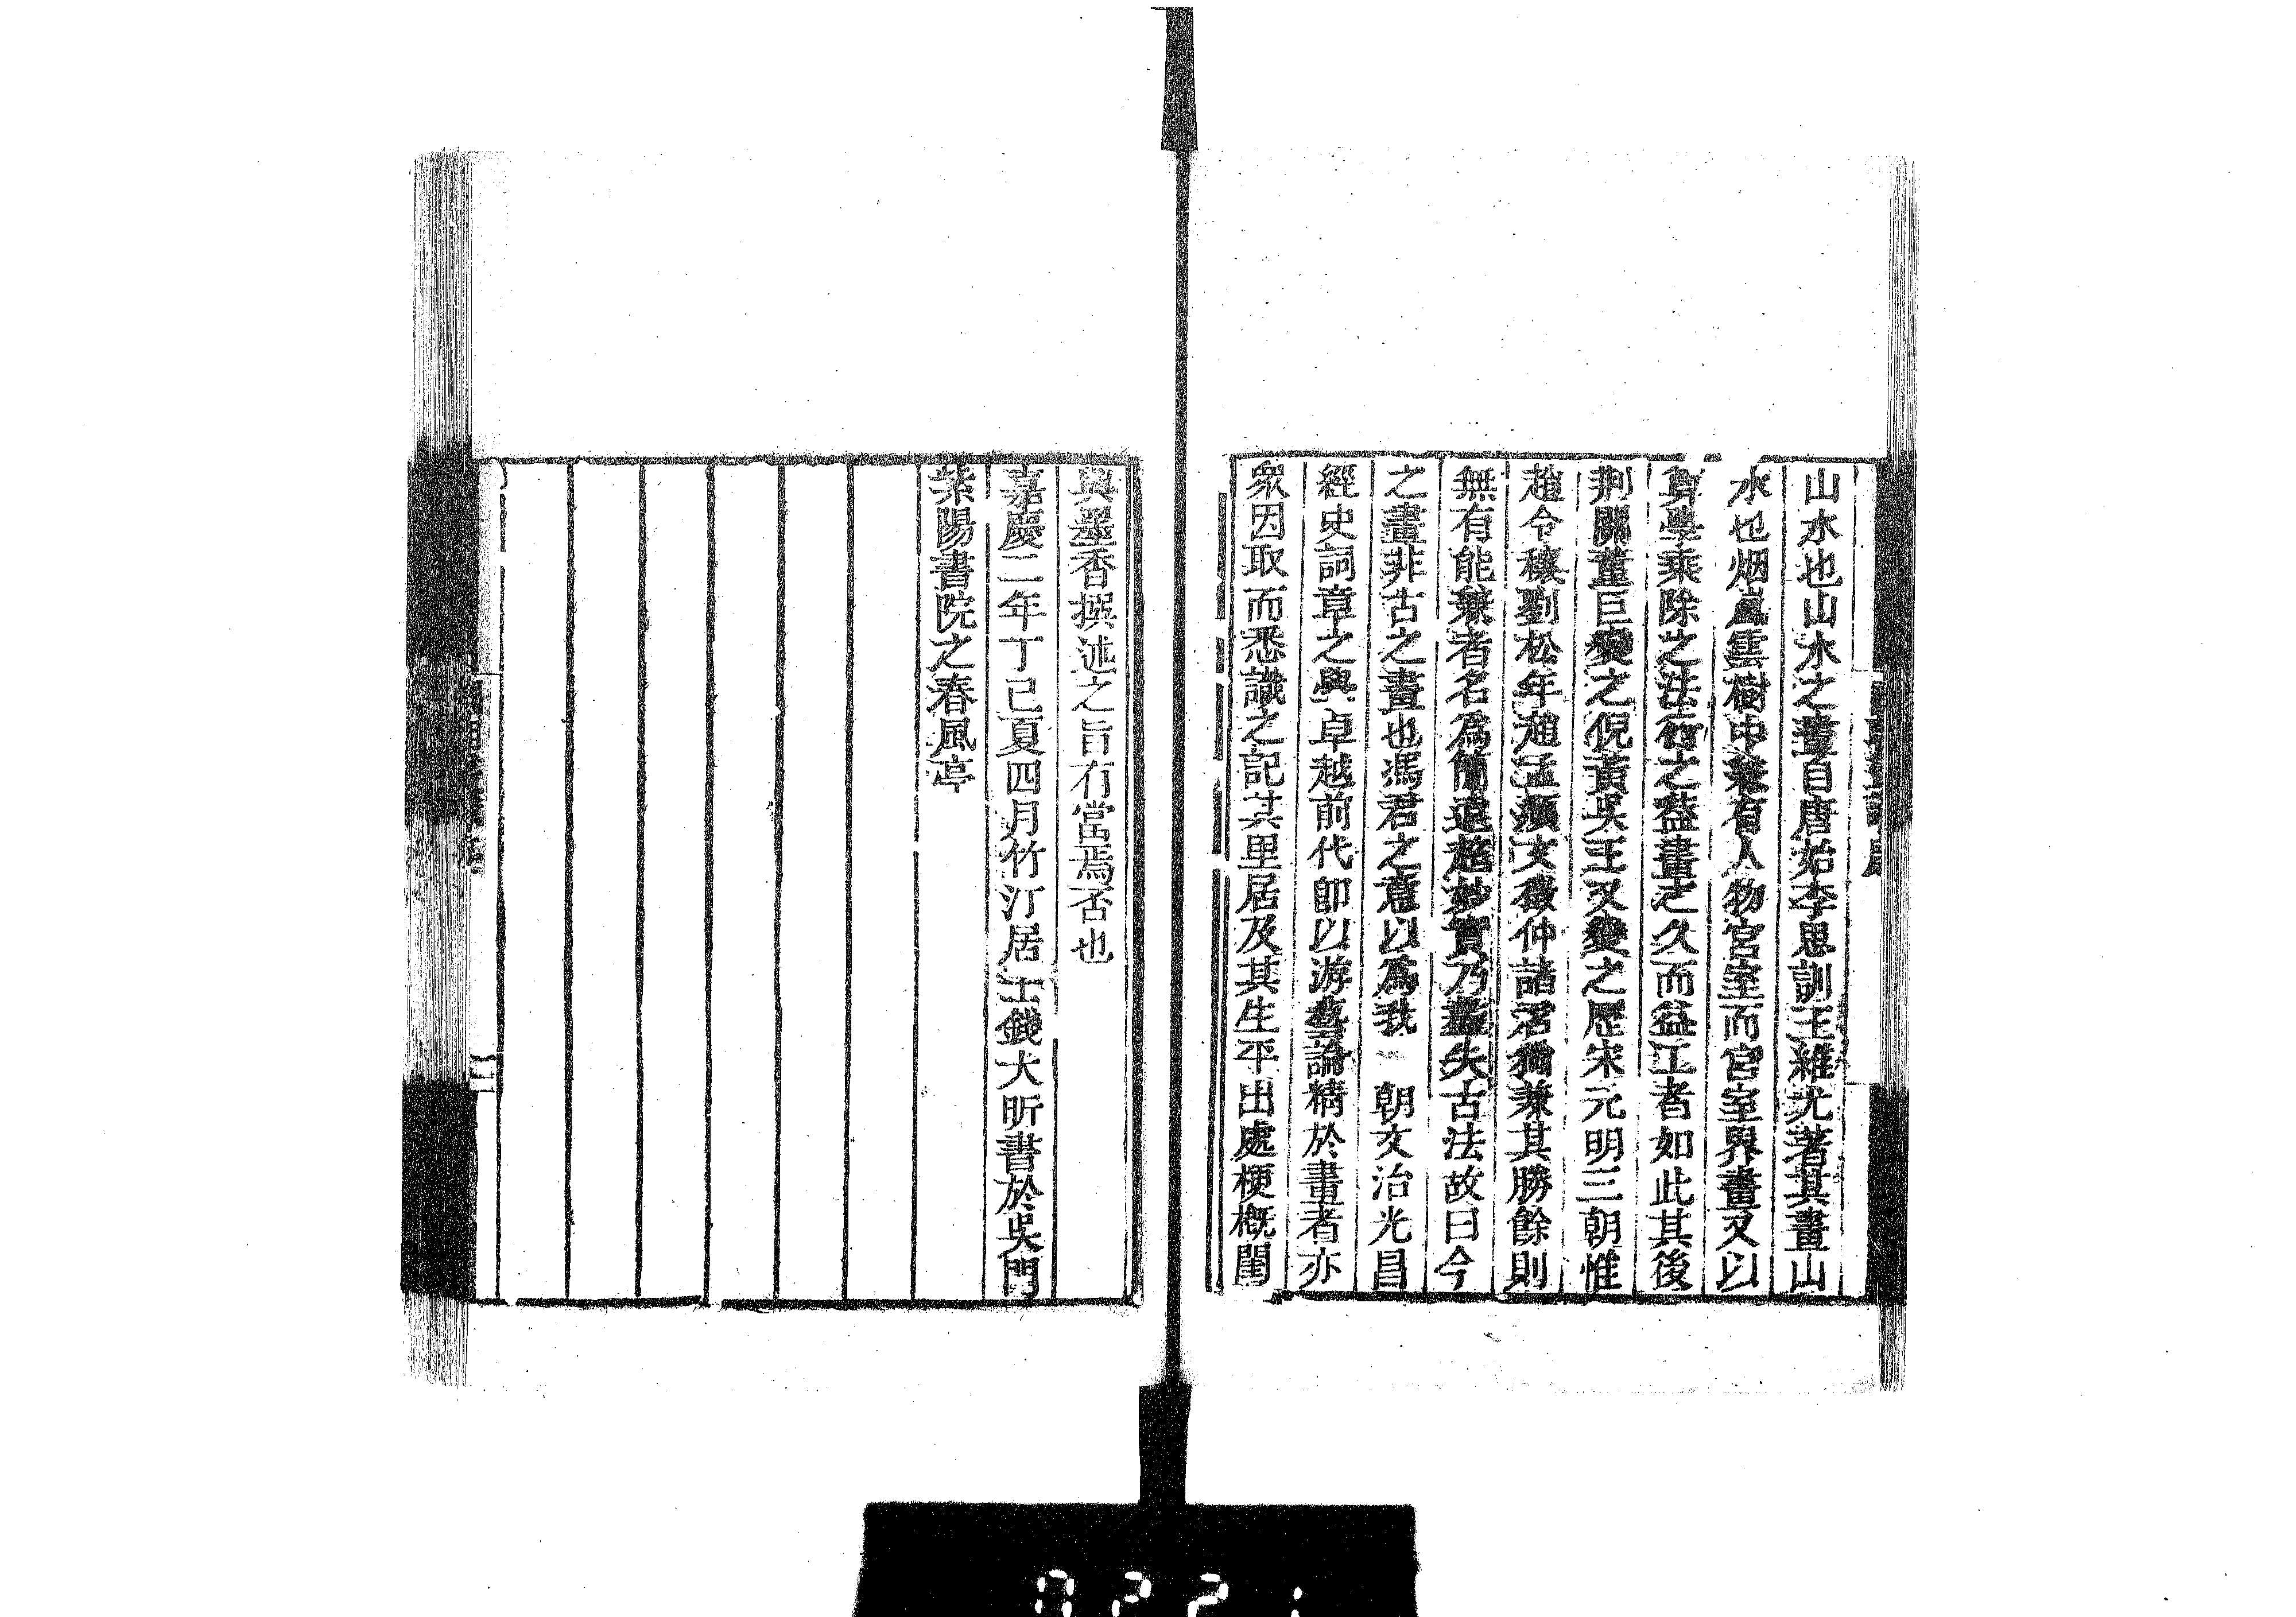 山水也山水之畫自唐始李思訓王維尤著其畫山
水也烟嵐雲樹中兼有人物宮室而宮室界畫又以
算學乘除之法行之葢畫之久而益工者如此其後
荆關董巨變之倪黃吳王又變之歷宋元明三朝惟
趙令穰劉松年趙孟頫文徵仲諸君猶兼其勝餘則
無有能兼者名爲簡遠超妙實乃盡失古法故曰今
之畫非古之畫也馮君之意以爲我 朝文治光昌
經史詞章之與卓越前代卽以游藝論精於畫者亦
衆因取而悉識之記其里居及其生平出處梗概閣
與墨香撰述之旨有當焉否也
嘉慶二年丁巳夏四月竹汀居士錢大昕書於吳門
紫陽書院之春風亭
二
0221